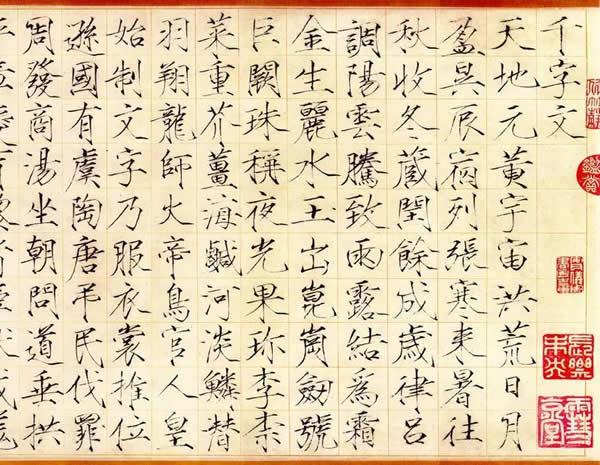 千字文
天地元黃宇宙洪荒日月
盈昃辰宿列張寒来暑往
秋收冬藏閏餘成歲律呂
調陽雲騰致雨露結爲霜
金生麗水玉出崑崗劒號
巨闕珠稱夜光果珎李柰
菜重芥薑海鹹河淡鱗潛
羽翔龍師火帝鳥官人皇
始制文字乃服衣裳推位
遜國有虞陶唐弔民伐罪
周發商湯坐朝問道垂拱